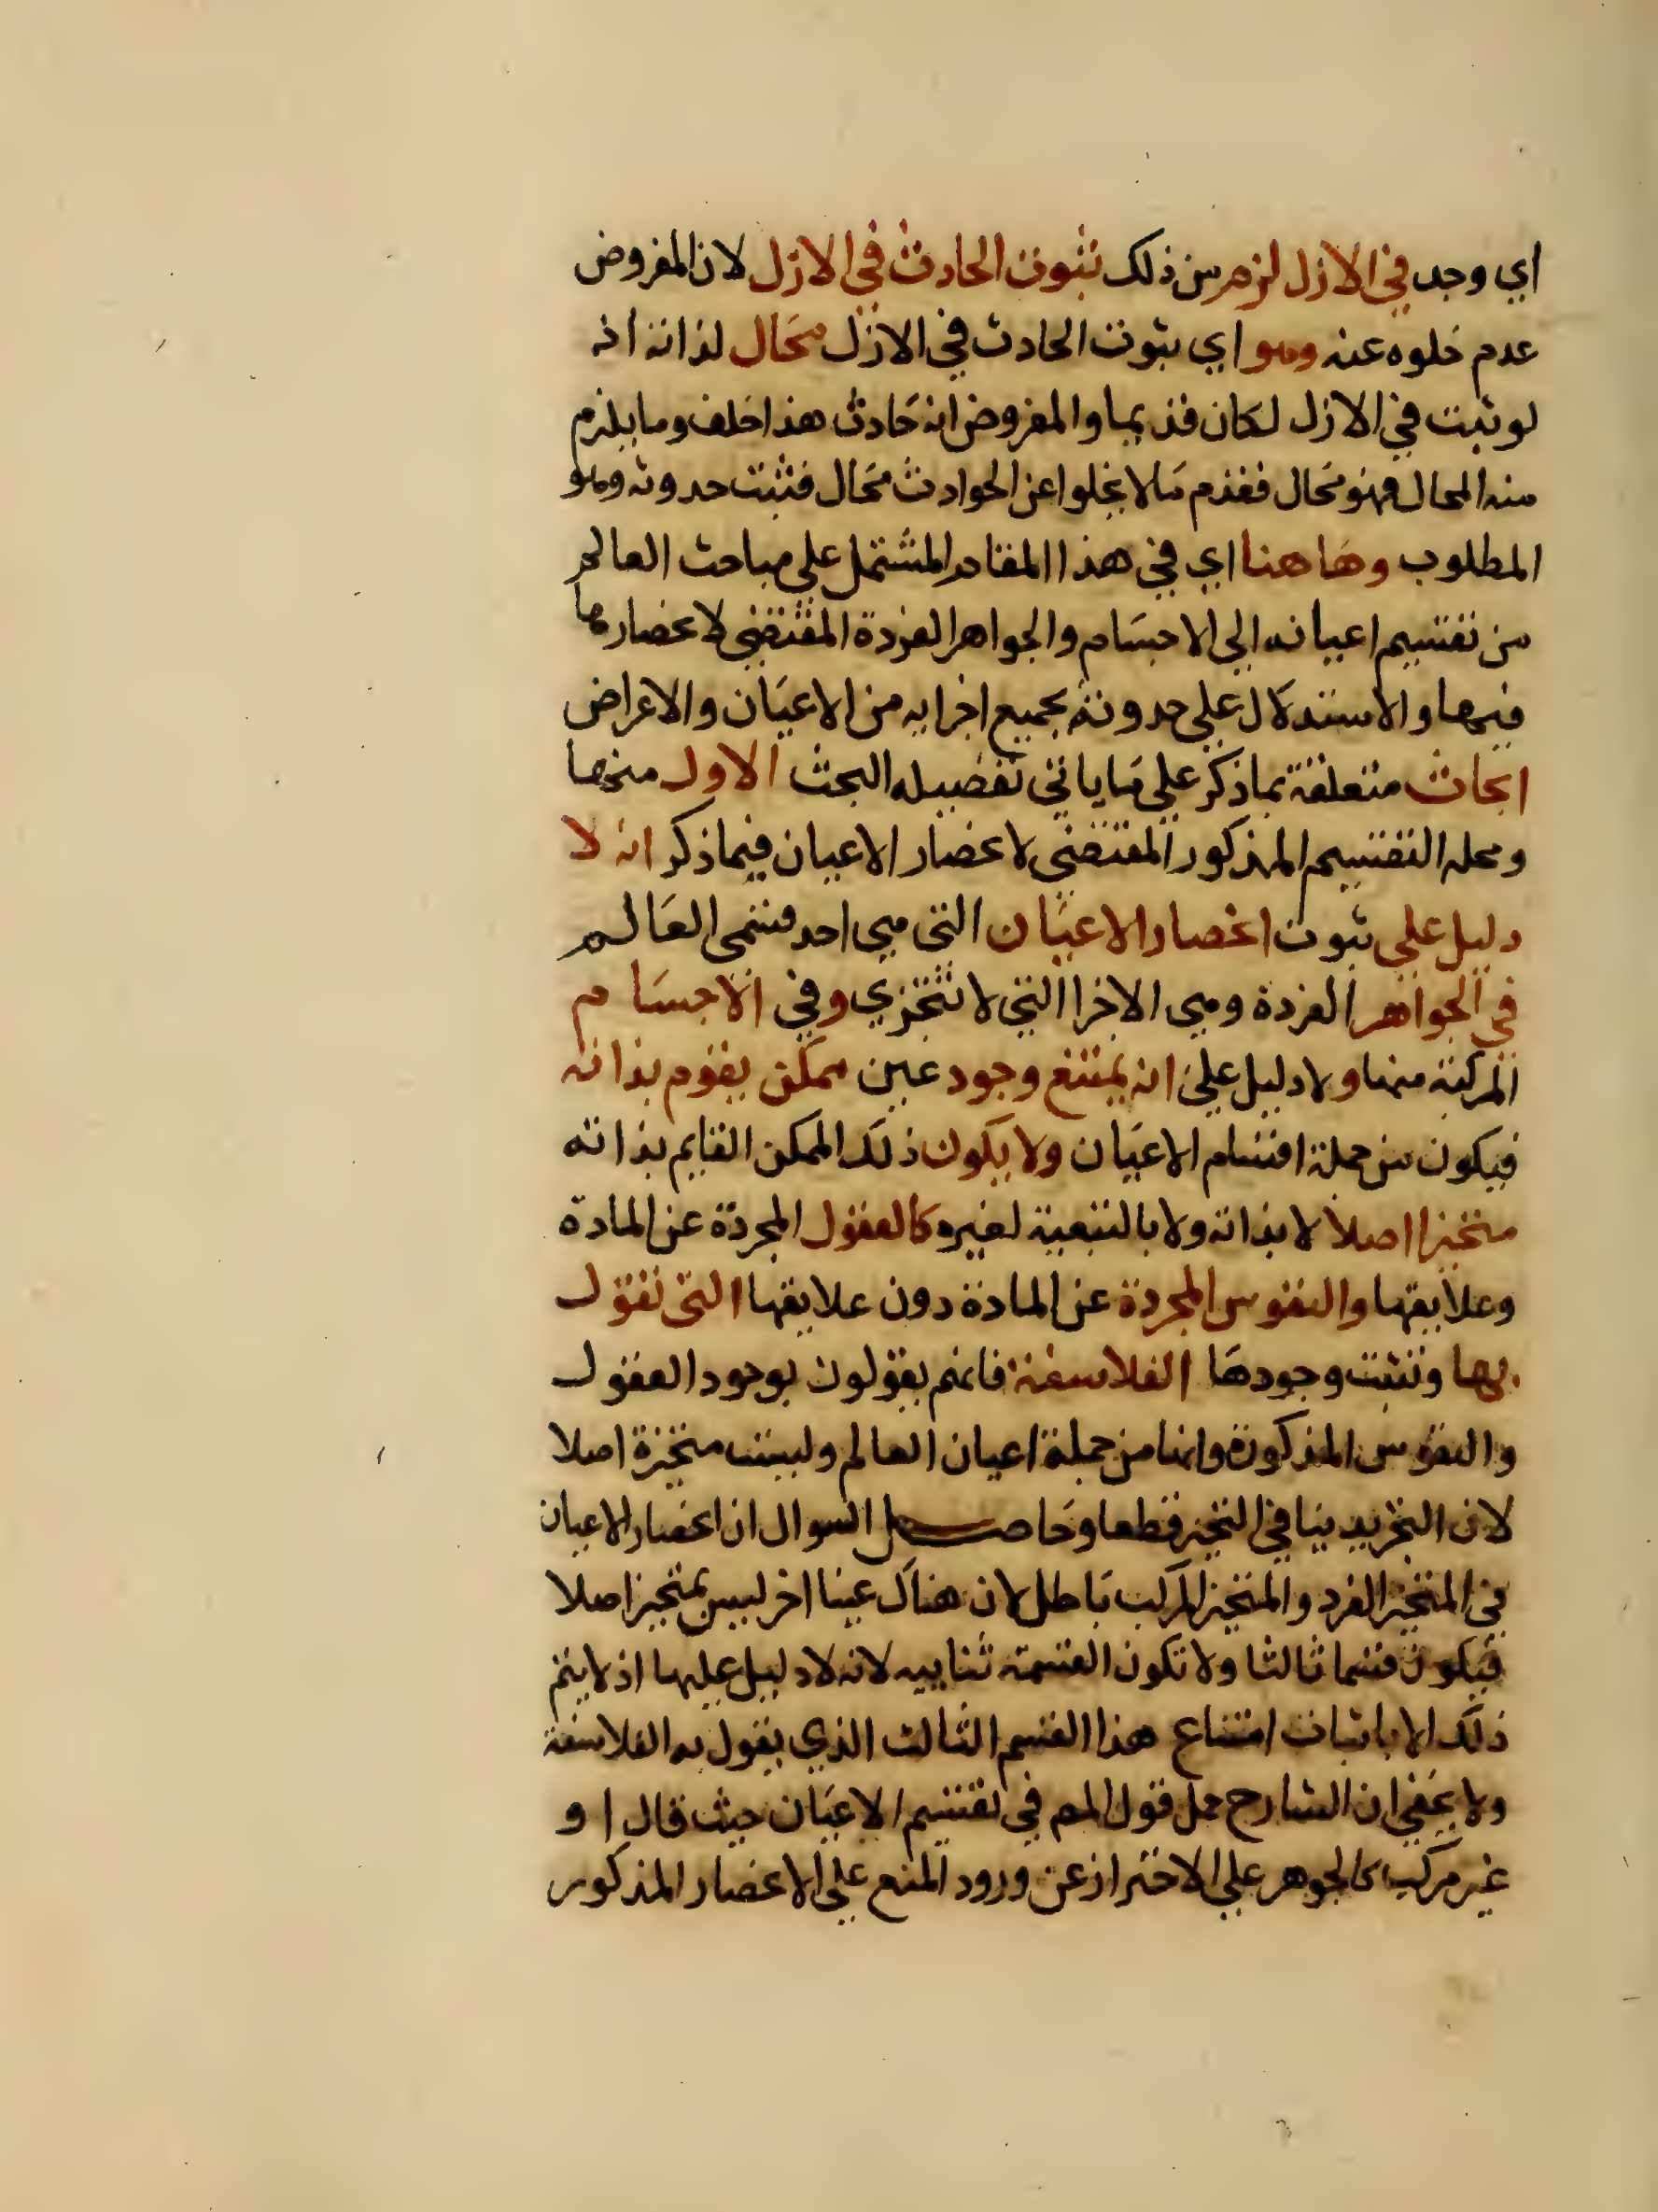 اي وجد في الازل لزم من ذلك ثبوت الحادث في الازل لان المفروض
عدم خلوه عنه وهو اي ثبوت الحادث في الازل محال لذاته اذ
لو ثبت في الازل لكان قديما والمفروض انه حادث هذا خلف وما يلزم
منه المحال فهو محال فقدم ما لا يخلوا عن الحوادث محال فثبت حدوثه وهو
المطلوب وهاهنا اي في هذا المقام المشتمل علي مباحث العالم
من تقسيم اعيانه الي الاجسام والجواهر الفردة المقتضي لانحصارها
فيها والاستدلال علي حدوثه بجميع اجزايه من الاعيان والاعراض
ابحاث متعلقة بما ذكر علي ما ياتي تفصيله البحث الاول منها
ومحله التقسيم المذكور المقتضي لانحصار الاعيان فيما ذكر انه لا
دليل علي ثبوت انحصار الاعيان التي هي احد قسمي العالم
في الجواهر الفردة وهي الاجزا التي لا تتجزي وفي الاجسام
المركبة منها ولا دليل علي انه يمتنع وجود عين ممكن يقوم بذاته
فيكون من جملة اقسام الاعيان ولا يكون ذلك الممكن القايم بذاته
متحيزا اصلا لا بذاته ولا بالتبعية لغيره كالعقول المجردة عن المادة
وعلايقها والنفوس المجردة عن المادة دون علايقها التي تقول
بها وتثبت وجودها الفلاسفة فانهم يقولون بوجود العقول
والنفوس المذكورة وانها من جملة اعيان العالم وليست متحيزة اصلا
لان التجريد ينافي التحيز قطعا وحاصل السوال ان انحصار الاعيان
في المتحيز الفرد والمتحيز المركب باطل لان هناك عينا اخر ليس بمتحيز اصلا
فيكون قسما ثالثا ولا تكون القسمة ثناييه لانه لا دليل عليها اذ لا يتم
ذلك الا باثبات امتناع هذا القسم الثالث الذي يقول به الفلاسفة
ولا يخفي ان الشارح حمل قول المص في تقسيم الاعيان حيث قال او
غير مركب كالجوهر علي الاحتراز عن ورود المنع علي الانحصار المذكور